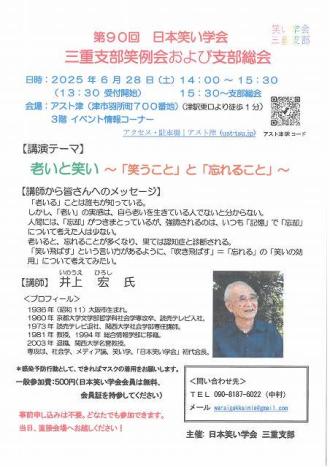 笑い学会
三重支部
第90回　日本笑い学会
三重支部笑例会および支部総会
日時：2025年6月28日（土）14：00～15：30
（13：30受付開始）　15：30～支部総会
会場：アスト津（津市羽所町700番地）（津駅東口より徒歩1分）
3階　イベント情報コーナー
アクセス・駐車場｜アスト津（ust-tsu.jp）
アスト津駅コード
【講演テーマ】
老いと笑い　～「笑うこと」と「忘れること」～
【講師から皆さんへのメッセージ】
「老いる」ことは誰もが知っている。
しかし、「老い」の実感は、自ら老いを生きている人でないと分からない。
人間には、「忘却」がつきまとっているが、強調されるのは、いつも「記憶」で「忘却」
について考えた人は少ない。
老いると、忘れることが多くなり、果ては認知症と診断される。
「笑い飛ばす」という言い方があるように、「吹き飛ばす」＝「忘れる」の「笑いの効
用」について考えてみたい。
いのうえ　ひろし
【講師】　井上　宏　氏
＜プロフィール＞
1936年（昭和11）大阪市生まれ。
1960年 京都大学文学部哲学科社会学専攻卒、読売テレビ入社。
1973年 読売テレビ退社、関西大学社会学部専任講師。
1981年 教授、1994年 総合情報学部に移籍。
2003年 退職、関西大学名誉教授。
専攻は、社会学、メディア論、笑い学。「日本笑い学会」初代会長。
＊感染予防行動として、できればマスクの着用をお願いします。
一般参加費：500円（日本笑い学会会員は無料、
会員証を持参してください）
事前申し込みは不要。どなたでも参加できます。
当日、直接会場へお越しください！
＜問い合わせ先＞
TEL　090-6187-6022（中村）
メール
主催：日本笑い学会　三重支部